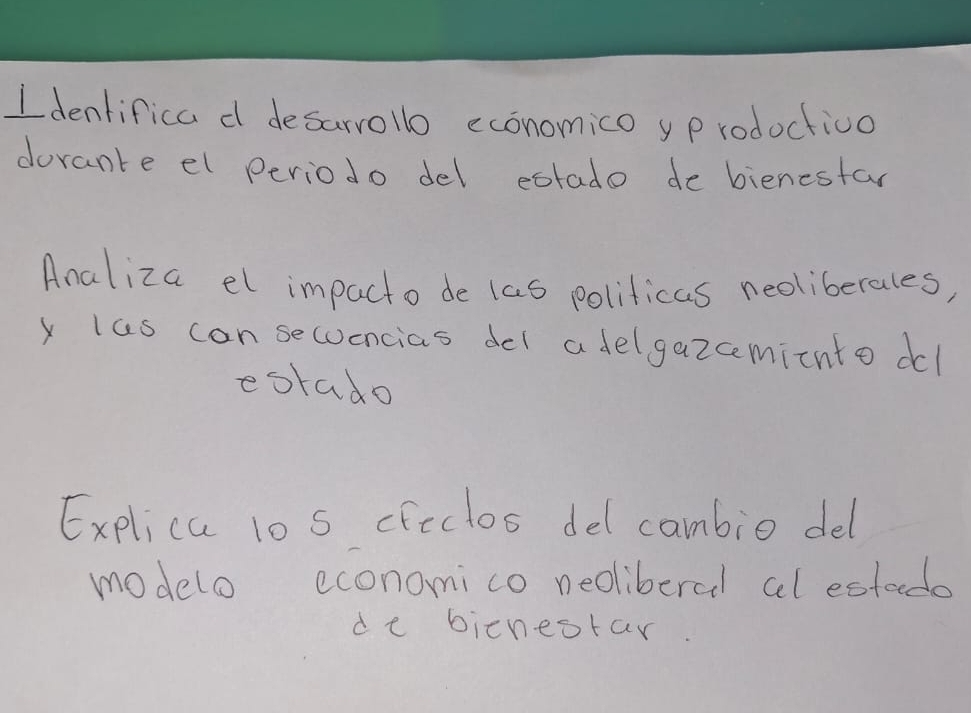 Identifica el desarrollo ecónomico y productivo
durante el periodo del estado de bienestar
Analiza el impacto de las politicas neoliberales,
y las consecuencias del adelgazamiento del
estado
Explica los efectos del cambio del
modelo economico neoliberal al estado
de bienestar.